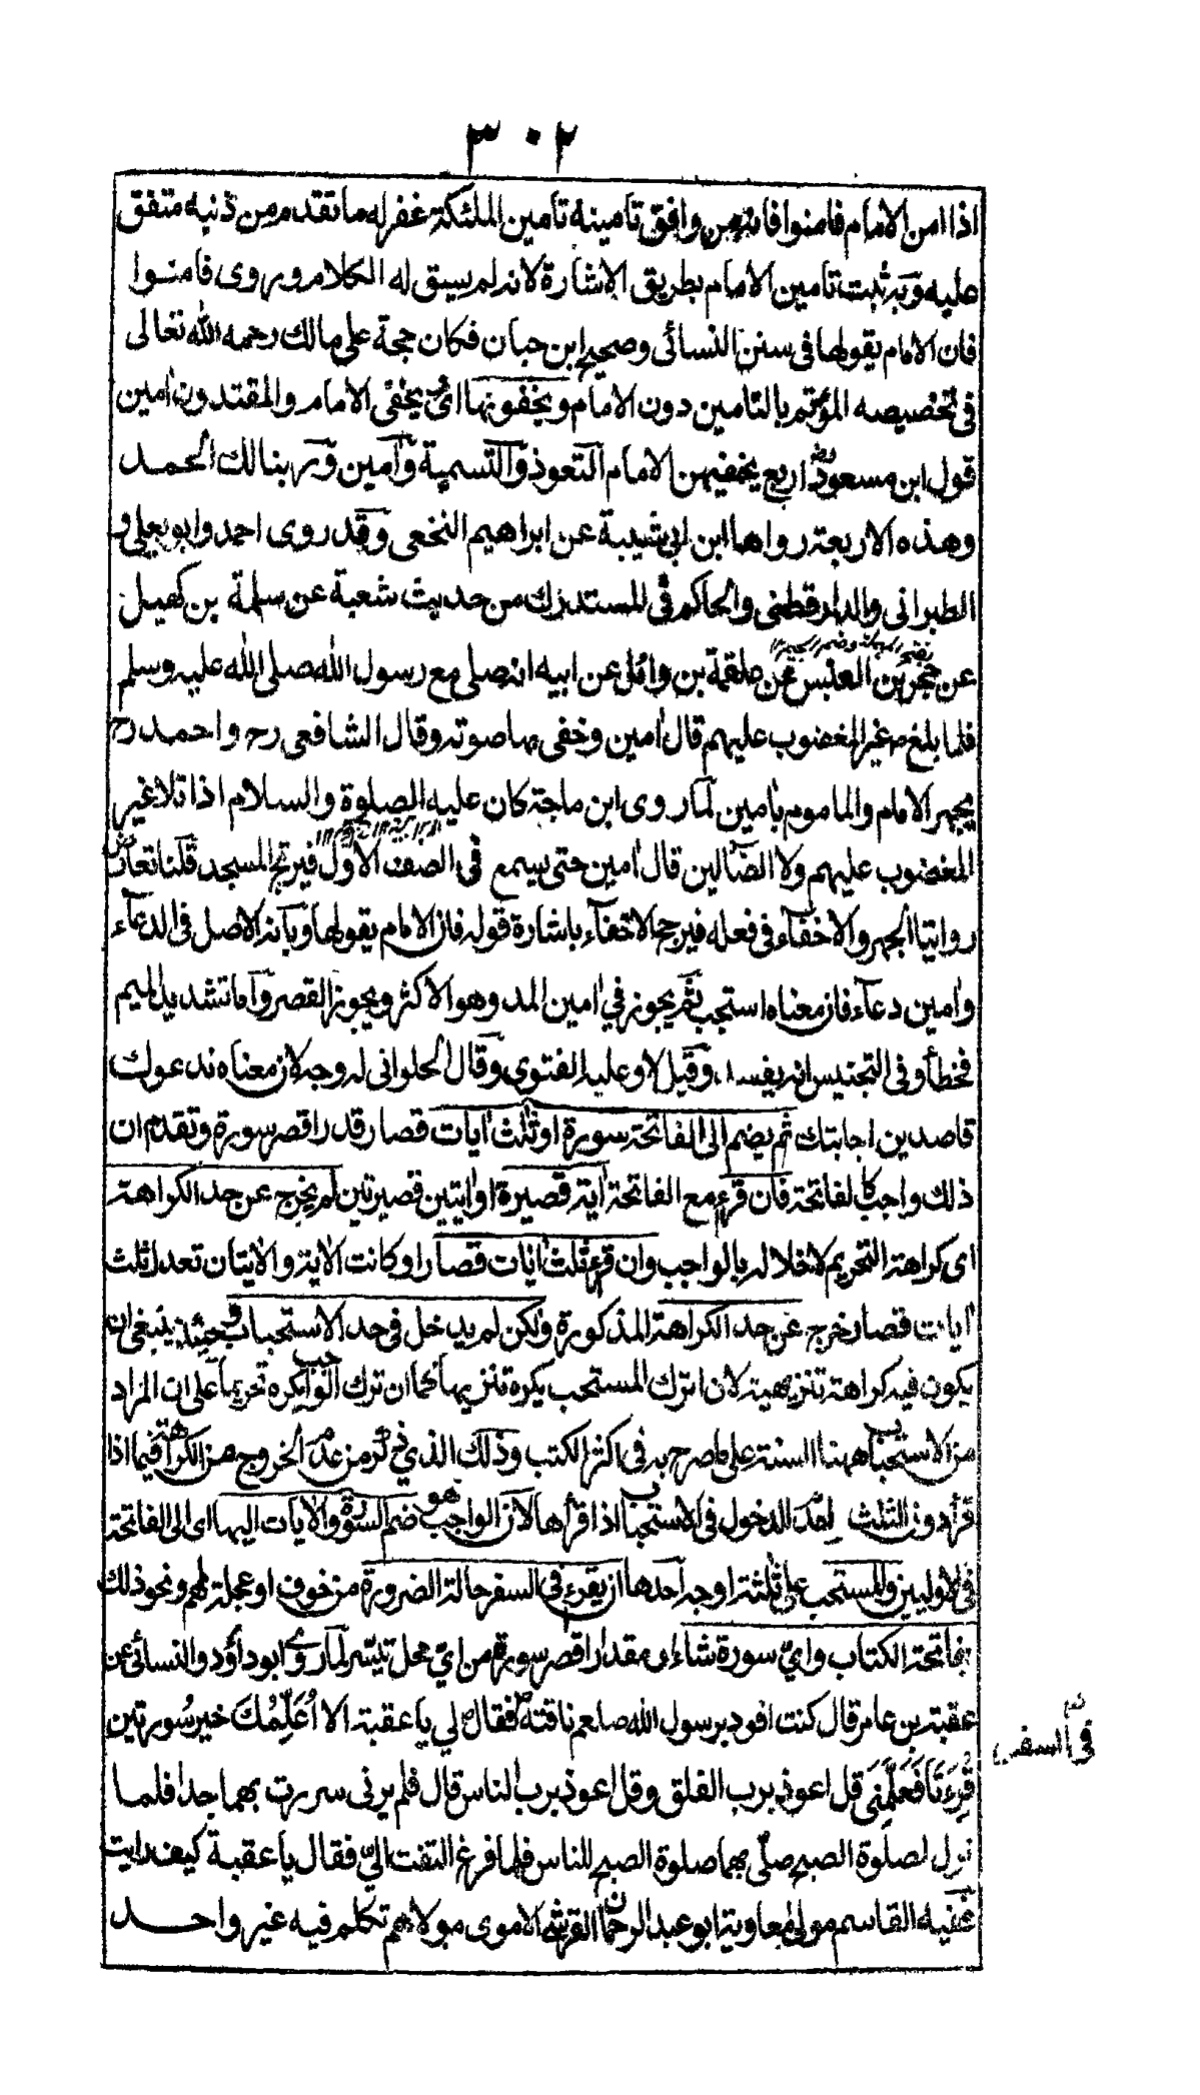 ٣٠٢
اذا امن الامام فامنوا فانه من وافق تامينه تامين الملئكة غفر له ما تقدم من ذنبه متفق
عليه وبه ثبت تامين الامام بطريق الاشارة لانه لم يسبق له الكلام وروى فامنوا
فان الامام يقولها فى سنن النسائى وصحيح ابن حبان فكان حجة على مالك رحمه الله تعالى
فى تخصيصه المؤتم بالتامين دون الامام ويخفونها اى يخفى الامام والمقتدون اٰمين
قول ابن مسعود رض اربع يخفيهن الامام التعوذ والتسمية واٰمين وربنا لك الحمد
وهذه الاربعة رواها ابن ابى شيبة عن ابراهيم النخعى وقد روى احمد وابو يعلى و
الطبرانى والدار قطنى والحاكم فى المستدرك من حديث شعبة عن سلمة بن كهيل
بفتح المهملة وضم الجيم ١٢
عن حجر بن العنبس عن علقمة بن وائل عن ابيه انه صلى مع رسول الله صلى الله عليه وسلم
فلما بلغ غير المغضوب عليهم قال اٰمين وخفى بها صوته وقال الشافعى رح واحمد رح
يجهر الامام والماموم باٰمين لما روى ابن ماجة كان عليه الصلوة والسلام اذا تلا غير
المغضوب عليهم ولا الضالين قال اٰمين حتى يسمع فى الصف الاول فيرتج المسجد قلنا تعارض
روايتا الجهر والاخفاء فى فعله فيرجح الاخفاء باشارة قوله فان الامام يقولها وبانه الاصل فى الدعاء
واٰمين دعاء فان معناه استجب ثم يجوز في اٰمين المد وهو الاكثر ويجوز القصر واما تشديد الميم
فخطأ وفى التجنيس انه يفسد وقيل لا وعليه الفتوى وقال الحلوانى له وجه لان معناه ندعوك
قاصدين اجابتك ثم يضم الى الفاتحة سورة او ثلٰث اٰيات قصار قدر اقصر سورة وتقدم ان
ذلك واجب كالفاتحة فان قرء مع الفاتحة اٰية قصيرة او اٰيتين قصيرتين لم يخرج عن حد الكراهة
اى كراهة التحريم لاخلاله بالواجب وان قرء ثلٰث اٰيات قصارا وكانت الاٰية والاٰيتان تعدل ثلث
اٰيات قصار خرج عن حد الكراهة المذكورة ولكن لم يدخل فى حد الاستحباب وحينئذ ينبغى ان
يكون فيه كراهة تنزيهية لان ترك المستحب يكره تنزيها كما ان ترك الواجب يكره تحريما على ان المراد
من الاستحباب ههنا السنة على ما صرح به فى اكثر الكتب وذلك الذى ذكر من عدم الخروج من الكراهة فيما اذا
قرأ دون الثلث وعدم الدخول فى الاستحباب اذا قرأها لان الواجب هو ضم السورة والاٰيات اليها اى الى الفاتحة
فى الاوليين والمستحب على ثلٰثة اوجه احدها ان يقرء فى السفر حالة الضرورة من خوف او عجلة لهم ونحو ذلك
بفاتحة الكتاب واىّ سورة شاء او مقدار اقصر سورة من اىّ محل تيسر لما روى ابو داؤد والنسائى عن
عقبة بن عامر قال كنت اقود برسول الله صلعم ناقته فقال لي يا عقبة الا اُعَلِّمُكَ خير سورتين
فى السفر
قُرِءَتَا فَعَلَّمَنِى قل اعوذ برب الفلق وقل اعوذ برب الناس قال فلم يرنى سررت بهما جدا فلما
نزل لصلٰوة الصبح صلّى بهما صلوة الصبح للناس فلما فرغ التفت الىّ فقال يا عقبة كيف رايت
وفيه القاسم مولى معاوية ابو عبد الرحمٰن القرشى الاموى مولاهم تكلم فيه غير واحد